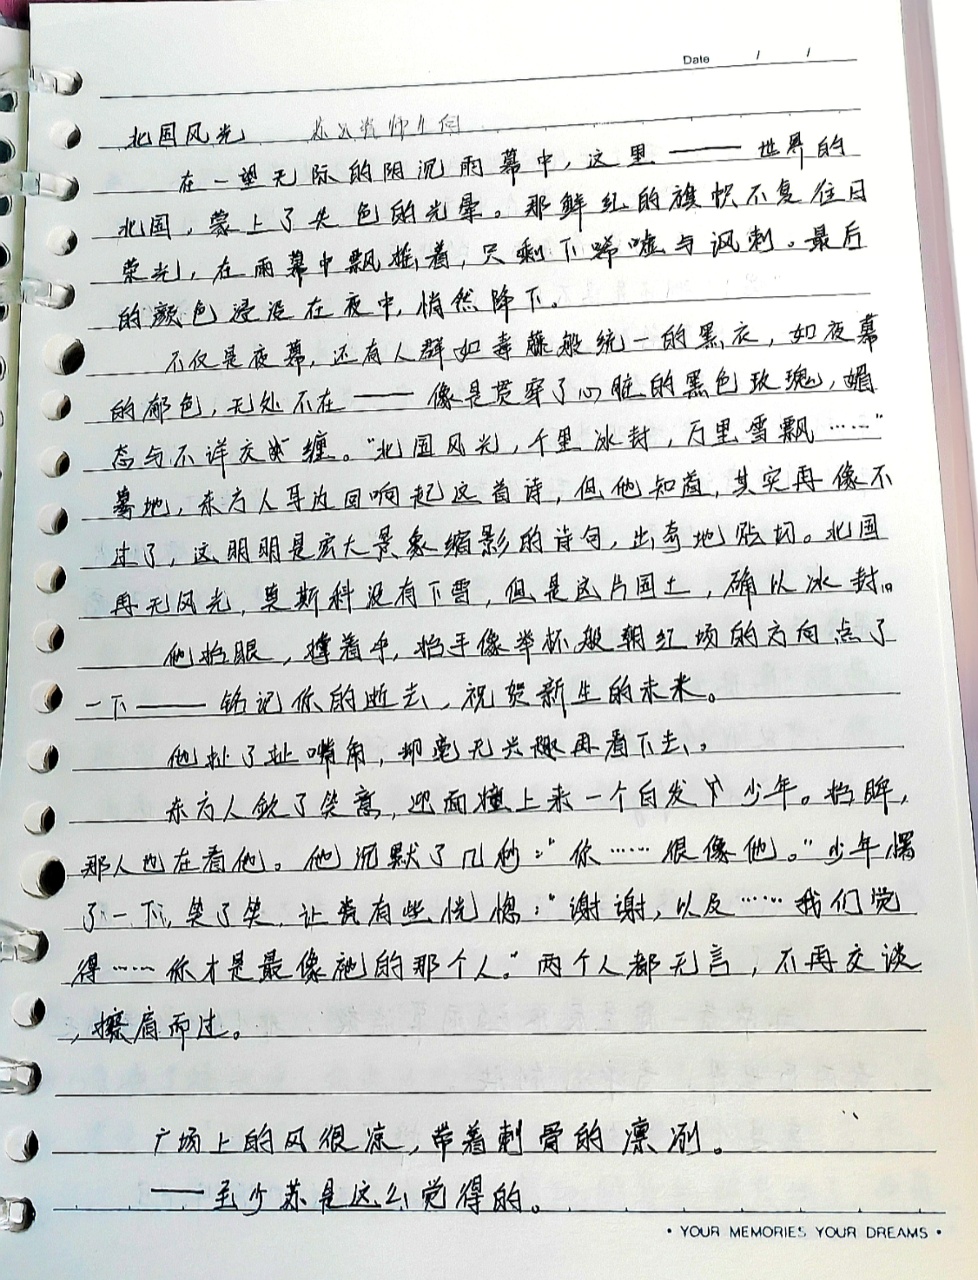 Date / /
北国风光 苏瓷 师生向
在一望无际的阴沉雨幕中，这里——世界的
北国，蒙上了失色的光晕。那鲜红的旗帜不复往日
荣光，在雨幕中飘摇着，只剩下唏嘘与讽刺。最后
的颜色浸没在夜中，悄然降下。
不仅是夜幕，还有人群如毒藤般统一的黑衣，如夜幕
的郁色，无处不在——像是贯穿了心脏的黑色玫瑰，媚
态与不详交缠。“北国风光，千里冰封，万里雪飘……”
蓦地，东方人耳边回响起这首诗，但他知道，其实再像不
过了，这明明是宏大景象缩影的诗句，出奇地贴切。北国
再无风光，莫斯科没有下雪，但是这片国土，确以冰封。
他抬眼，撑着伞，抬手像举杯般朝红场的方向点了
一下——铭记你的逝去，祝贺新生的未来。
他扯了扯嘴角，却毫无兴趣再看下去。
东方人敛了笑意，迎面撞上来一个白发少年。抬眸，
那人也在看他。他沉默了几秒：“你……很像他。”少年愣
了一下，笑了笑，让瓷有些恍惚：“谢谢，以及……我们觉
得……你才是最像祂的那个人。”两个人都无言，不再交谈
，擦肩而过。
广场上的风很凉，带着刺骨的凛冽。
——至少苏是这么觉得的。
• YOUR MEMORIES YOUR DREAMS •